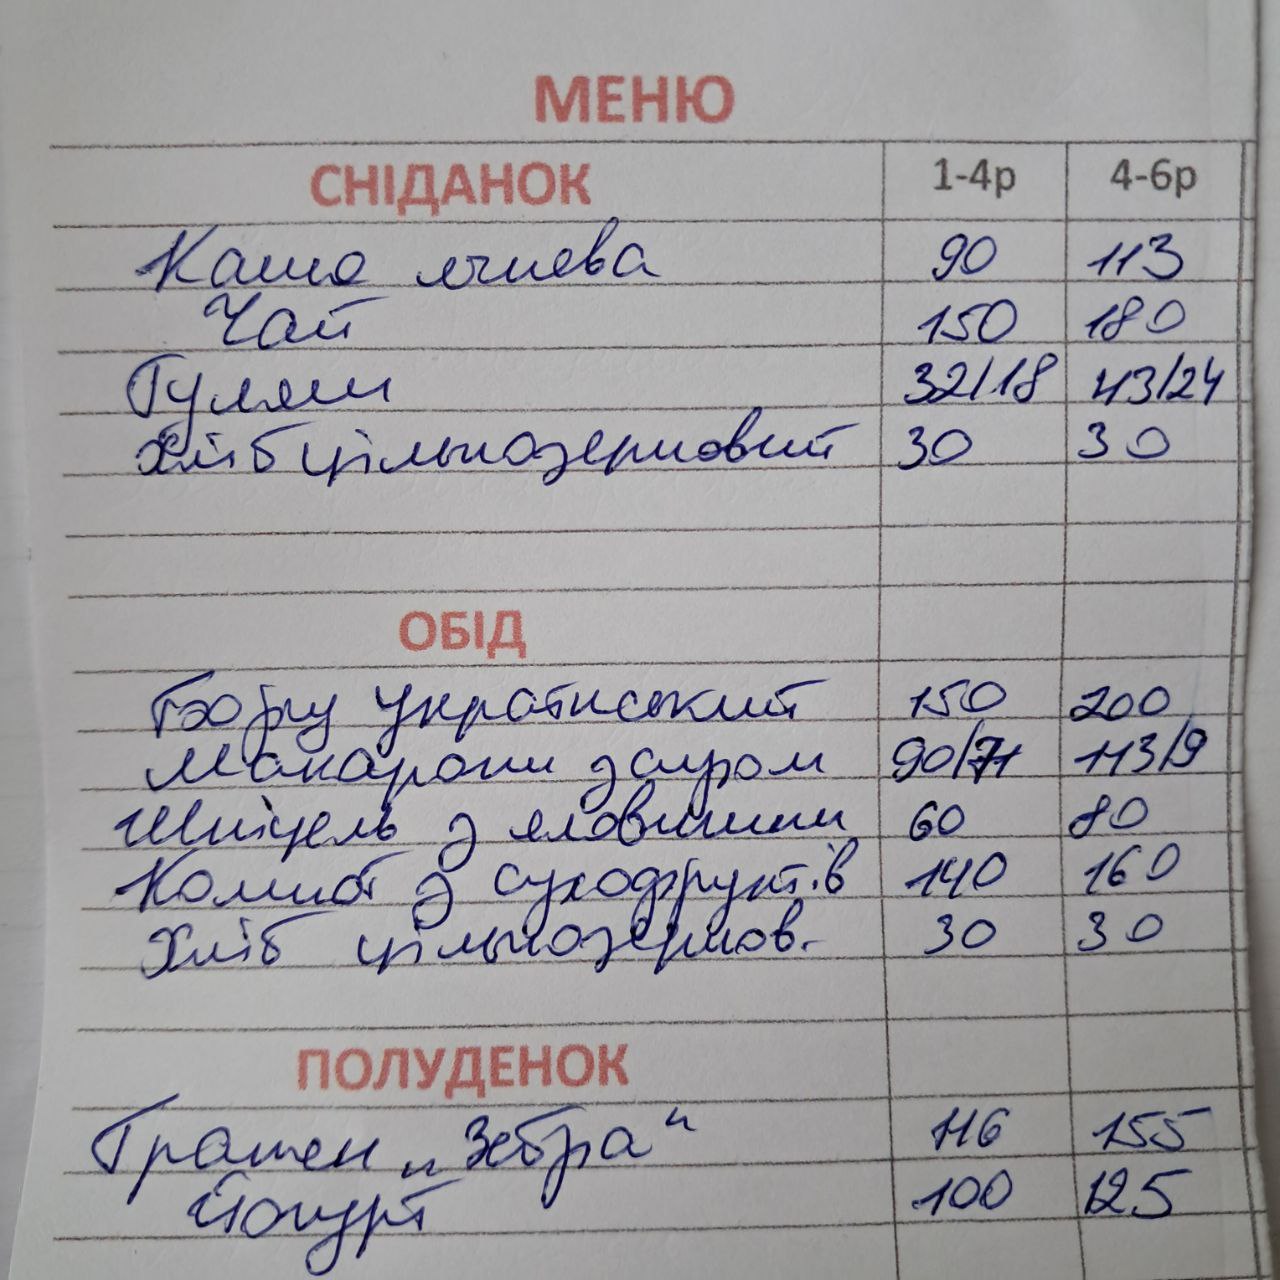 МЕНЮ
СНІДАНОК 1-4р 4-6р
Каша ячнева 90 113
Чай 150 180
Гуляш 32/18 43/24
Хліб цільнозерновий 30 30
ОБІД
Борщ український 150 200
Макарони з сиром 90/7 113/9
Шніцель з яловичини 60 80
Компот з сухофруктів 140 160
Хліб цільнозернов. 30 30
ПОЛУДЕНОК
"Зебра" 116 155
Йогурт 100 125